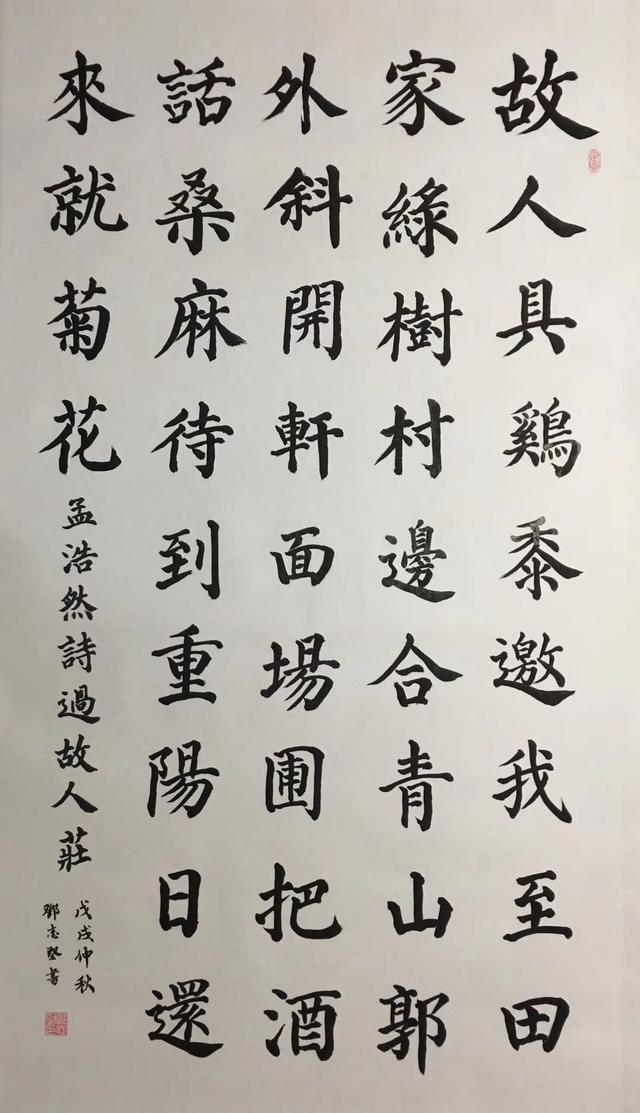 故人具鷄黍邀我至田
家綠樹村邊合青山郭
外斜開軒面場圃把酒
話桑麻待到重陽日還
來就菊花孟浩然詩過故人莊
戊戌仲秋
鄧志堅書